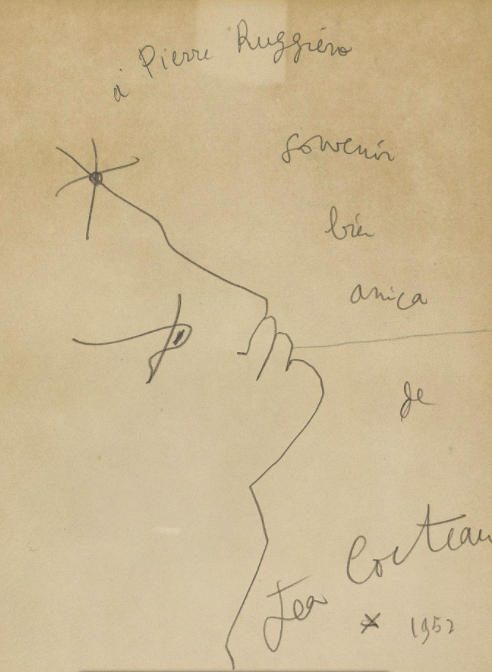 à Pierre Ruggiéro
souvenir
bien
amical
de
Jean Cocteau
* 1952